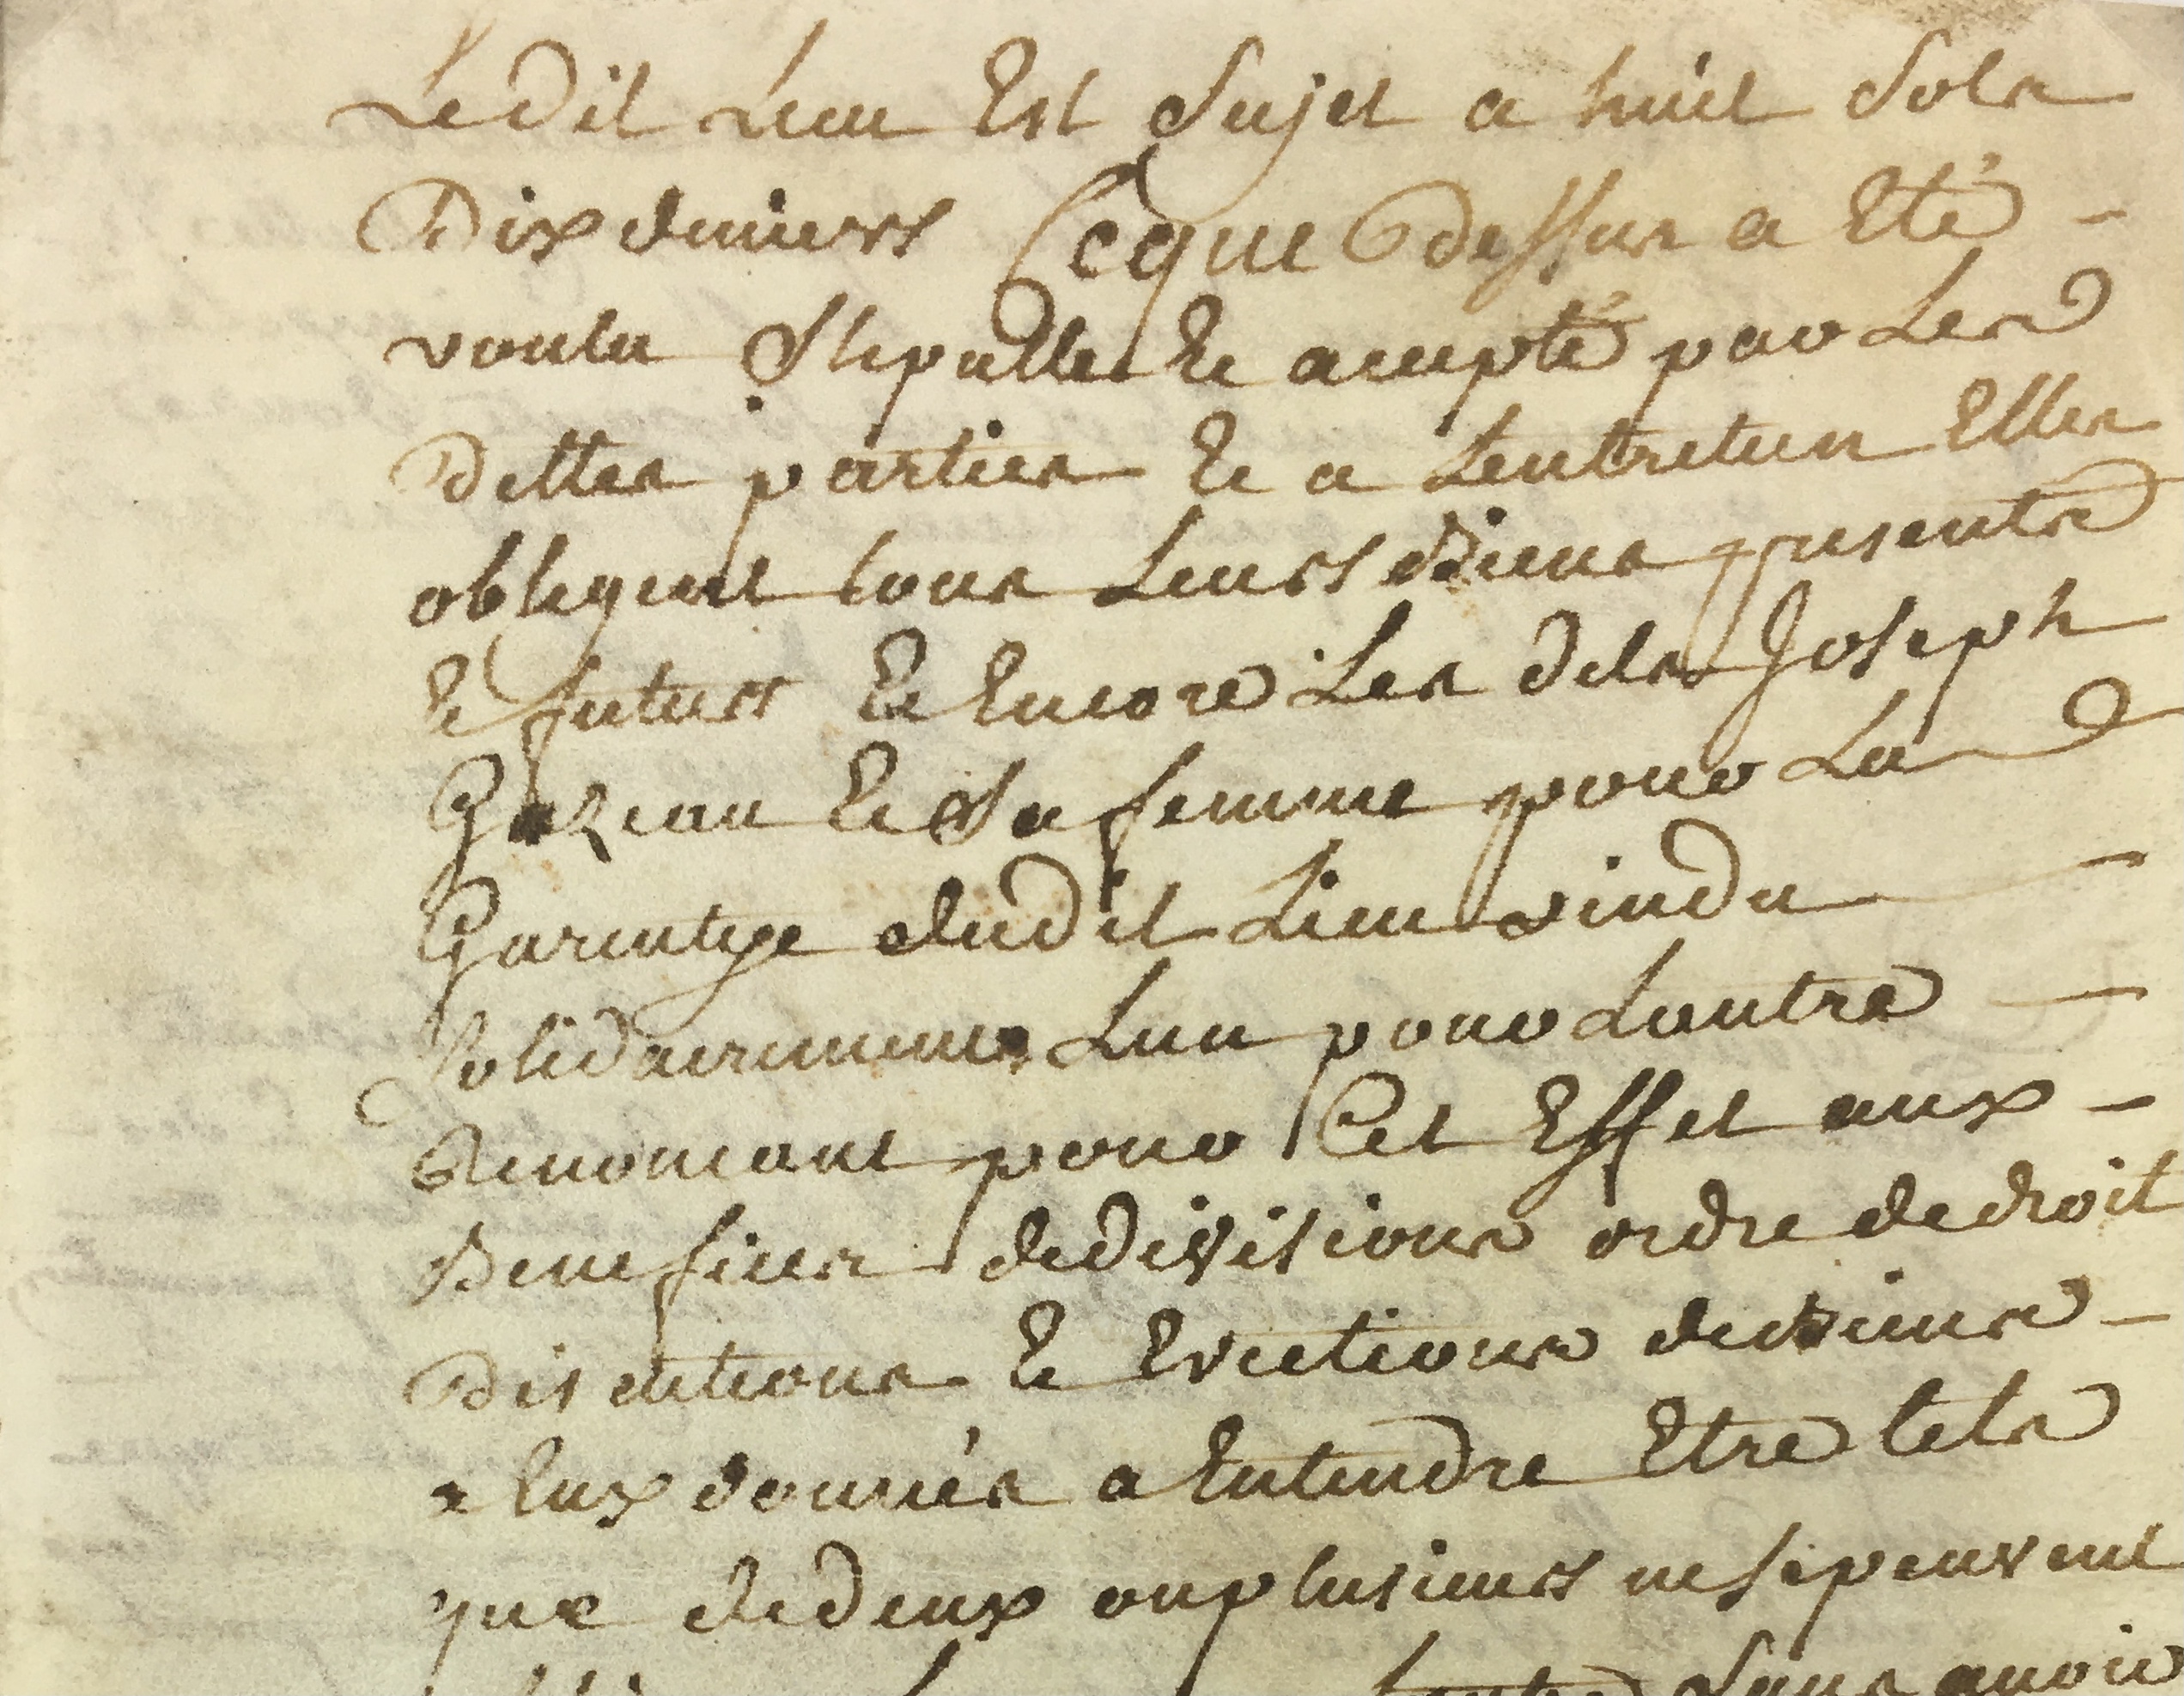 Ledit Lieu Est Sujet a huit Sols
Dix deniers Ceque dessus a Eté -
voulu Stipullé Et accepté par Les
Dittes parties Et a Lentretien Elles
obligent tous Leurs Biens presents
Et futurs Et Encore Les dits Joseph
Gazeau Et Sa femme pour La
Garentye dudit Lieu vendu
Solidairement Lun pour Lautre
Renonceant pour Cet Effet aux -
Benefices de divisions ordre de droit
Discutions Et Evictions de biens -
a Eux donnés a Entendre Etre tels
que de deux ou plusieurs ne se peuvent
Sans avoir